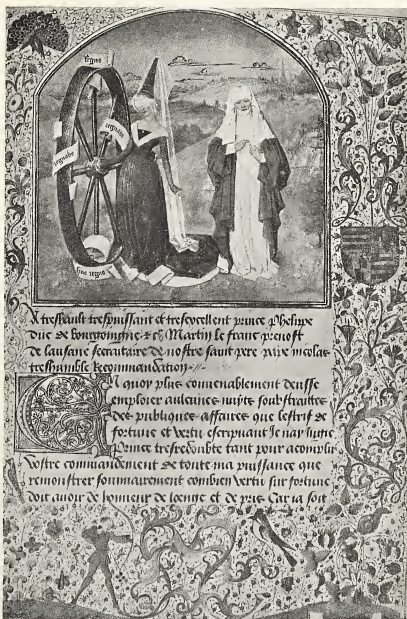 regno
regnavi
regnabo
sine regno
A treshault trespuissant et tresexcellent prince Phelippe
duc de bourgoingne &c Martin le franc prevost
de lausane secretaire de nostre saint pere pape nicolas
treshumble Recommandation
En quoy plus convenablement deusse
employer aulcunes nuytz soubstraittes
des publiques affaires que lestrif de
fortune et vertu escripuant Je nay
Prince tresredoubte tant pour acomplir
vostre commandement de toute ma puissance que
remonstrer sommairement combien vertu sur fortune
doit avoir de honneur de loenge et de pris Car ia soit